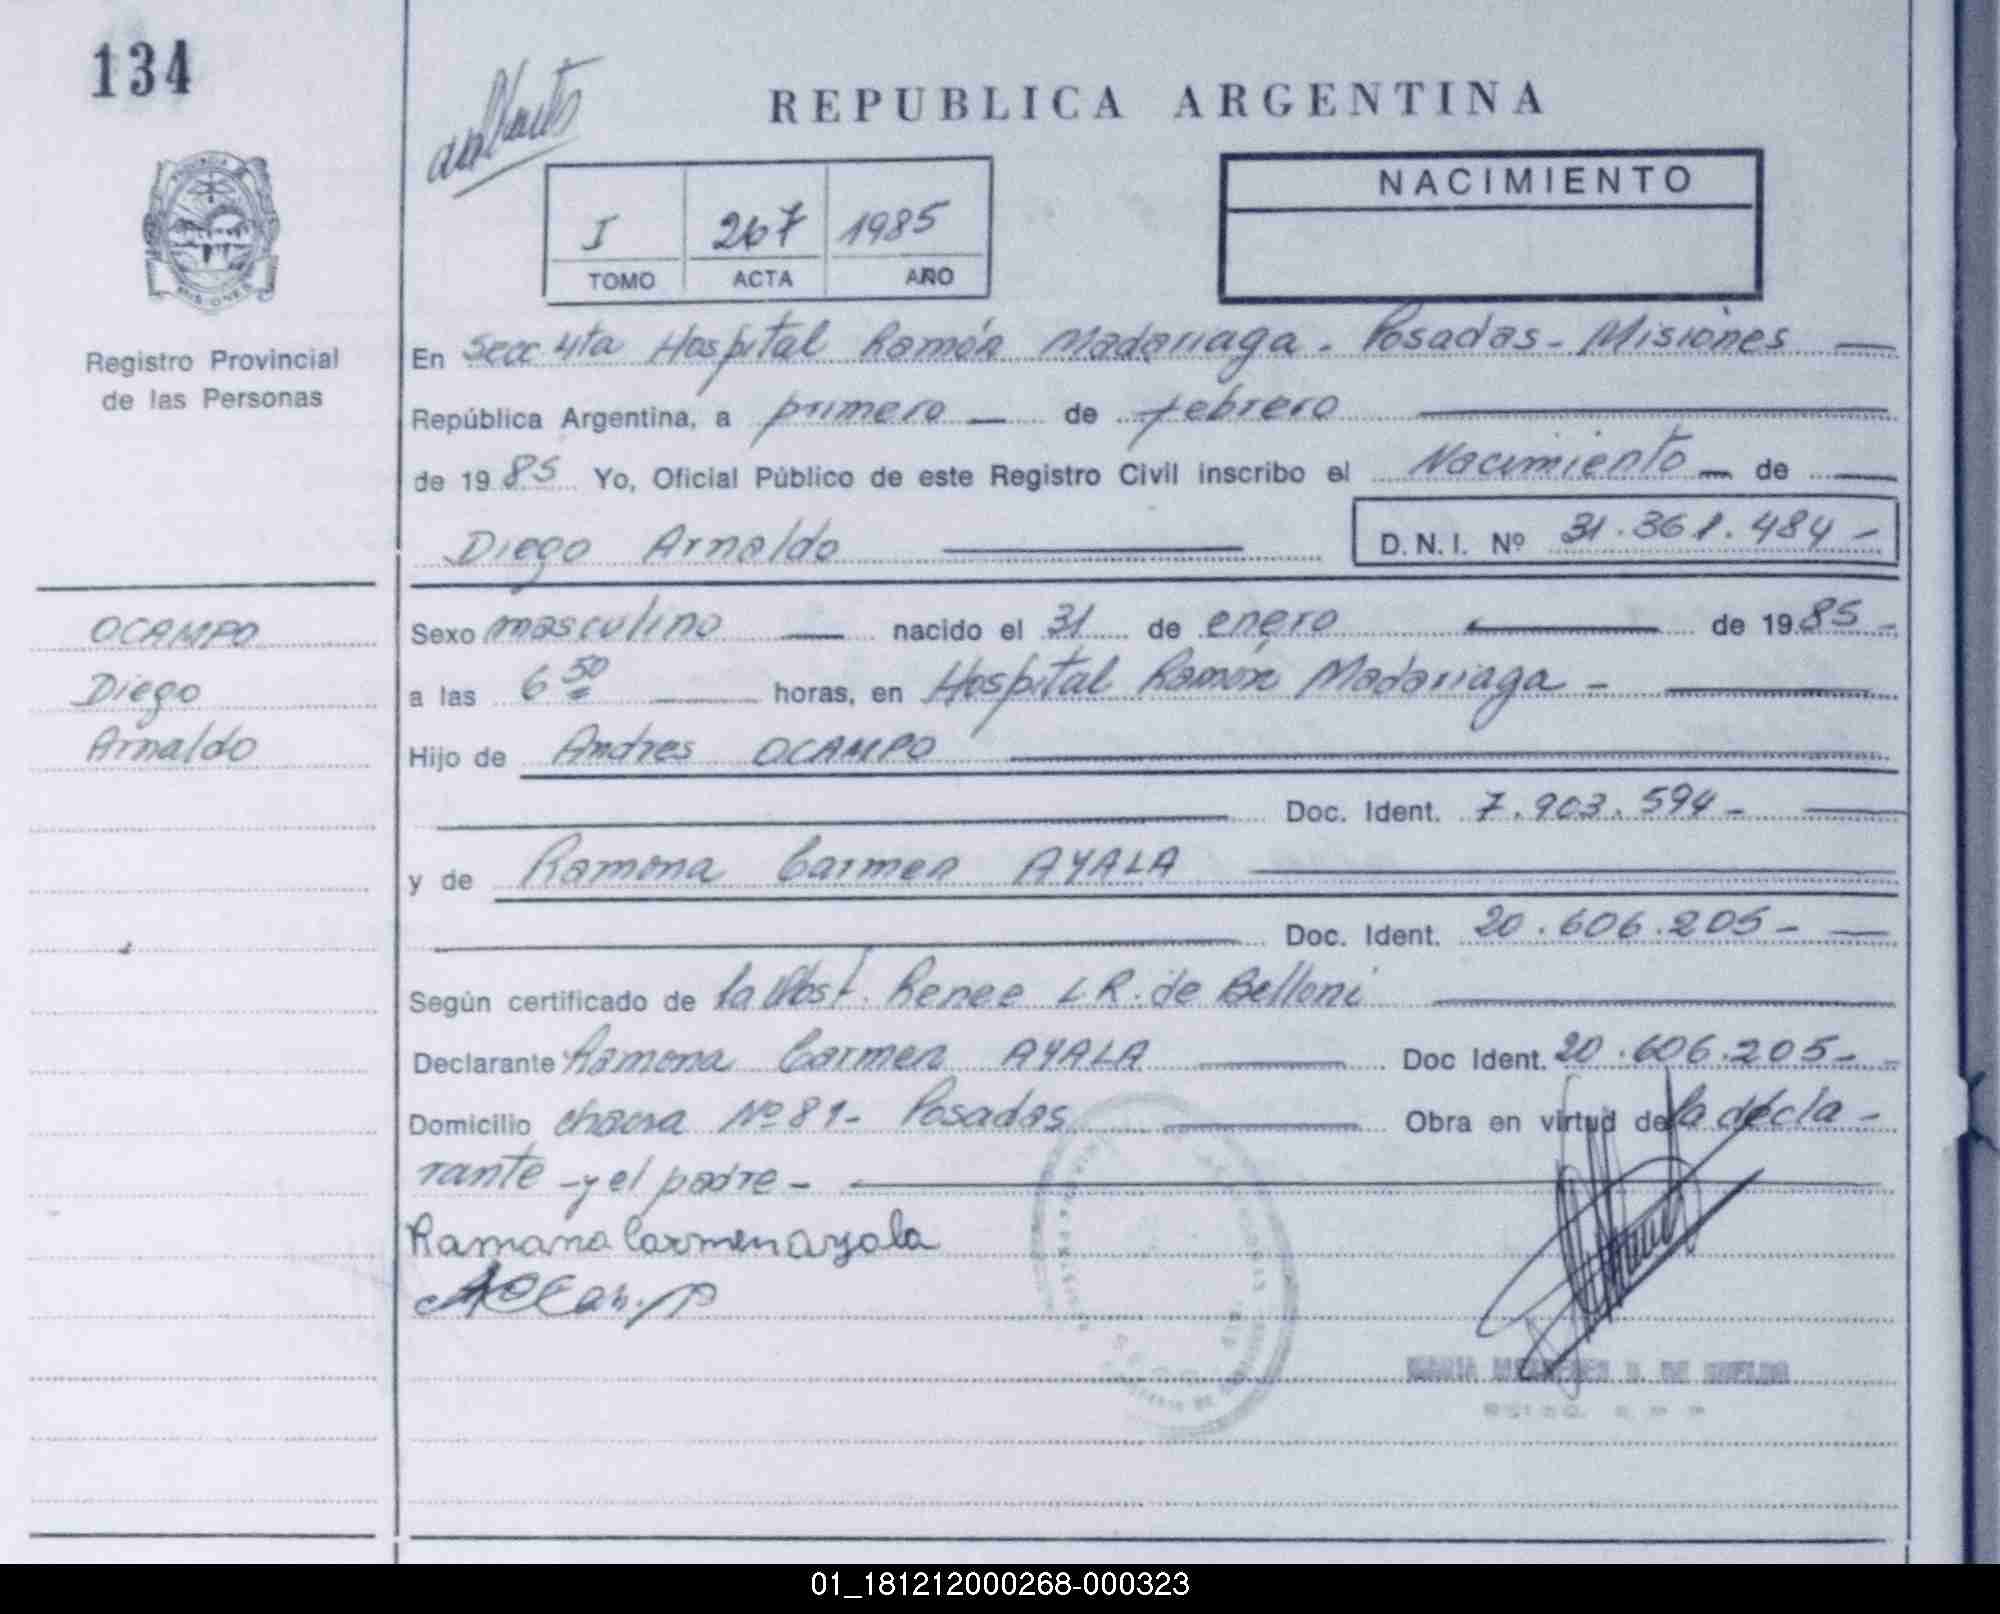 134
REPUBLICA ARGENTINA
NACIMIENTO
I 267 1985
TOMO ACTA AÑO
MISIONES
Registro Provincial
de las Personas
En Secc 4ta Hospital Ramón Madariaga - Posadas - Misiones
República Argentina, a primero de febrero
de 1985 Yo, Oficial Público de este Registro Civil inscribo el Nacimiento de
Diego Arnaldo D.N.I. Nº 31.361.484-
OCAMPO
Diego
Arnaldo
Sexo masculino nacido el 31 de enero de 1985-
a las 6 50 horas, en Hospital Ramón Madariaga -
Hijo de Andres OCAMPO
Doc. Ident. 7.903.594-
y de Ramona Carmen AYALA
Doc. Ident. 20.606.205-
Según certificado de la Obst. Renee L R. de Belloni
Declarante Ramona Carmen AYALA Doc Ident. 20.606.205-
Domicilio chacra Nº 81- Posadas Obra en virtud de la decla-
rante - y el padre -
Ramona Carmen Ayala
MARIA DE
01_181212000268-000323